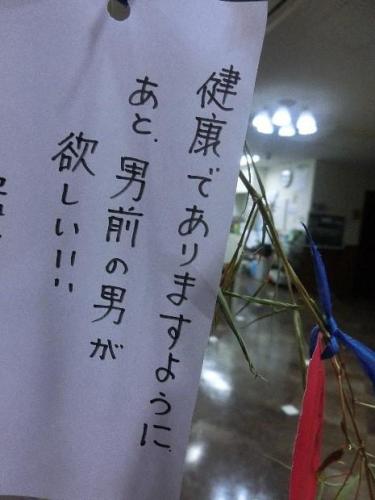 健康でありますように
あと、男前の男が
欲しい!!!